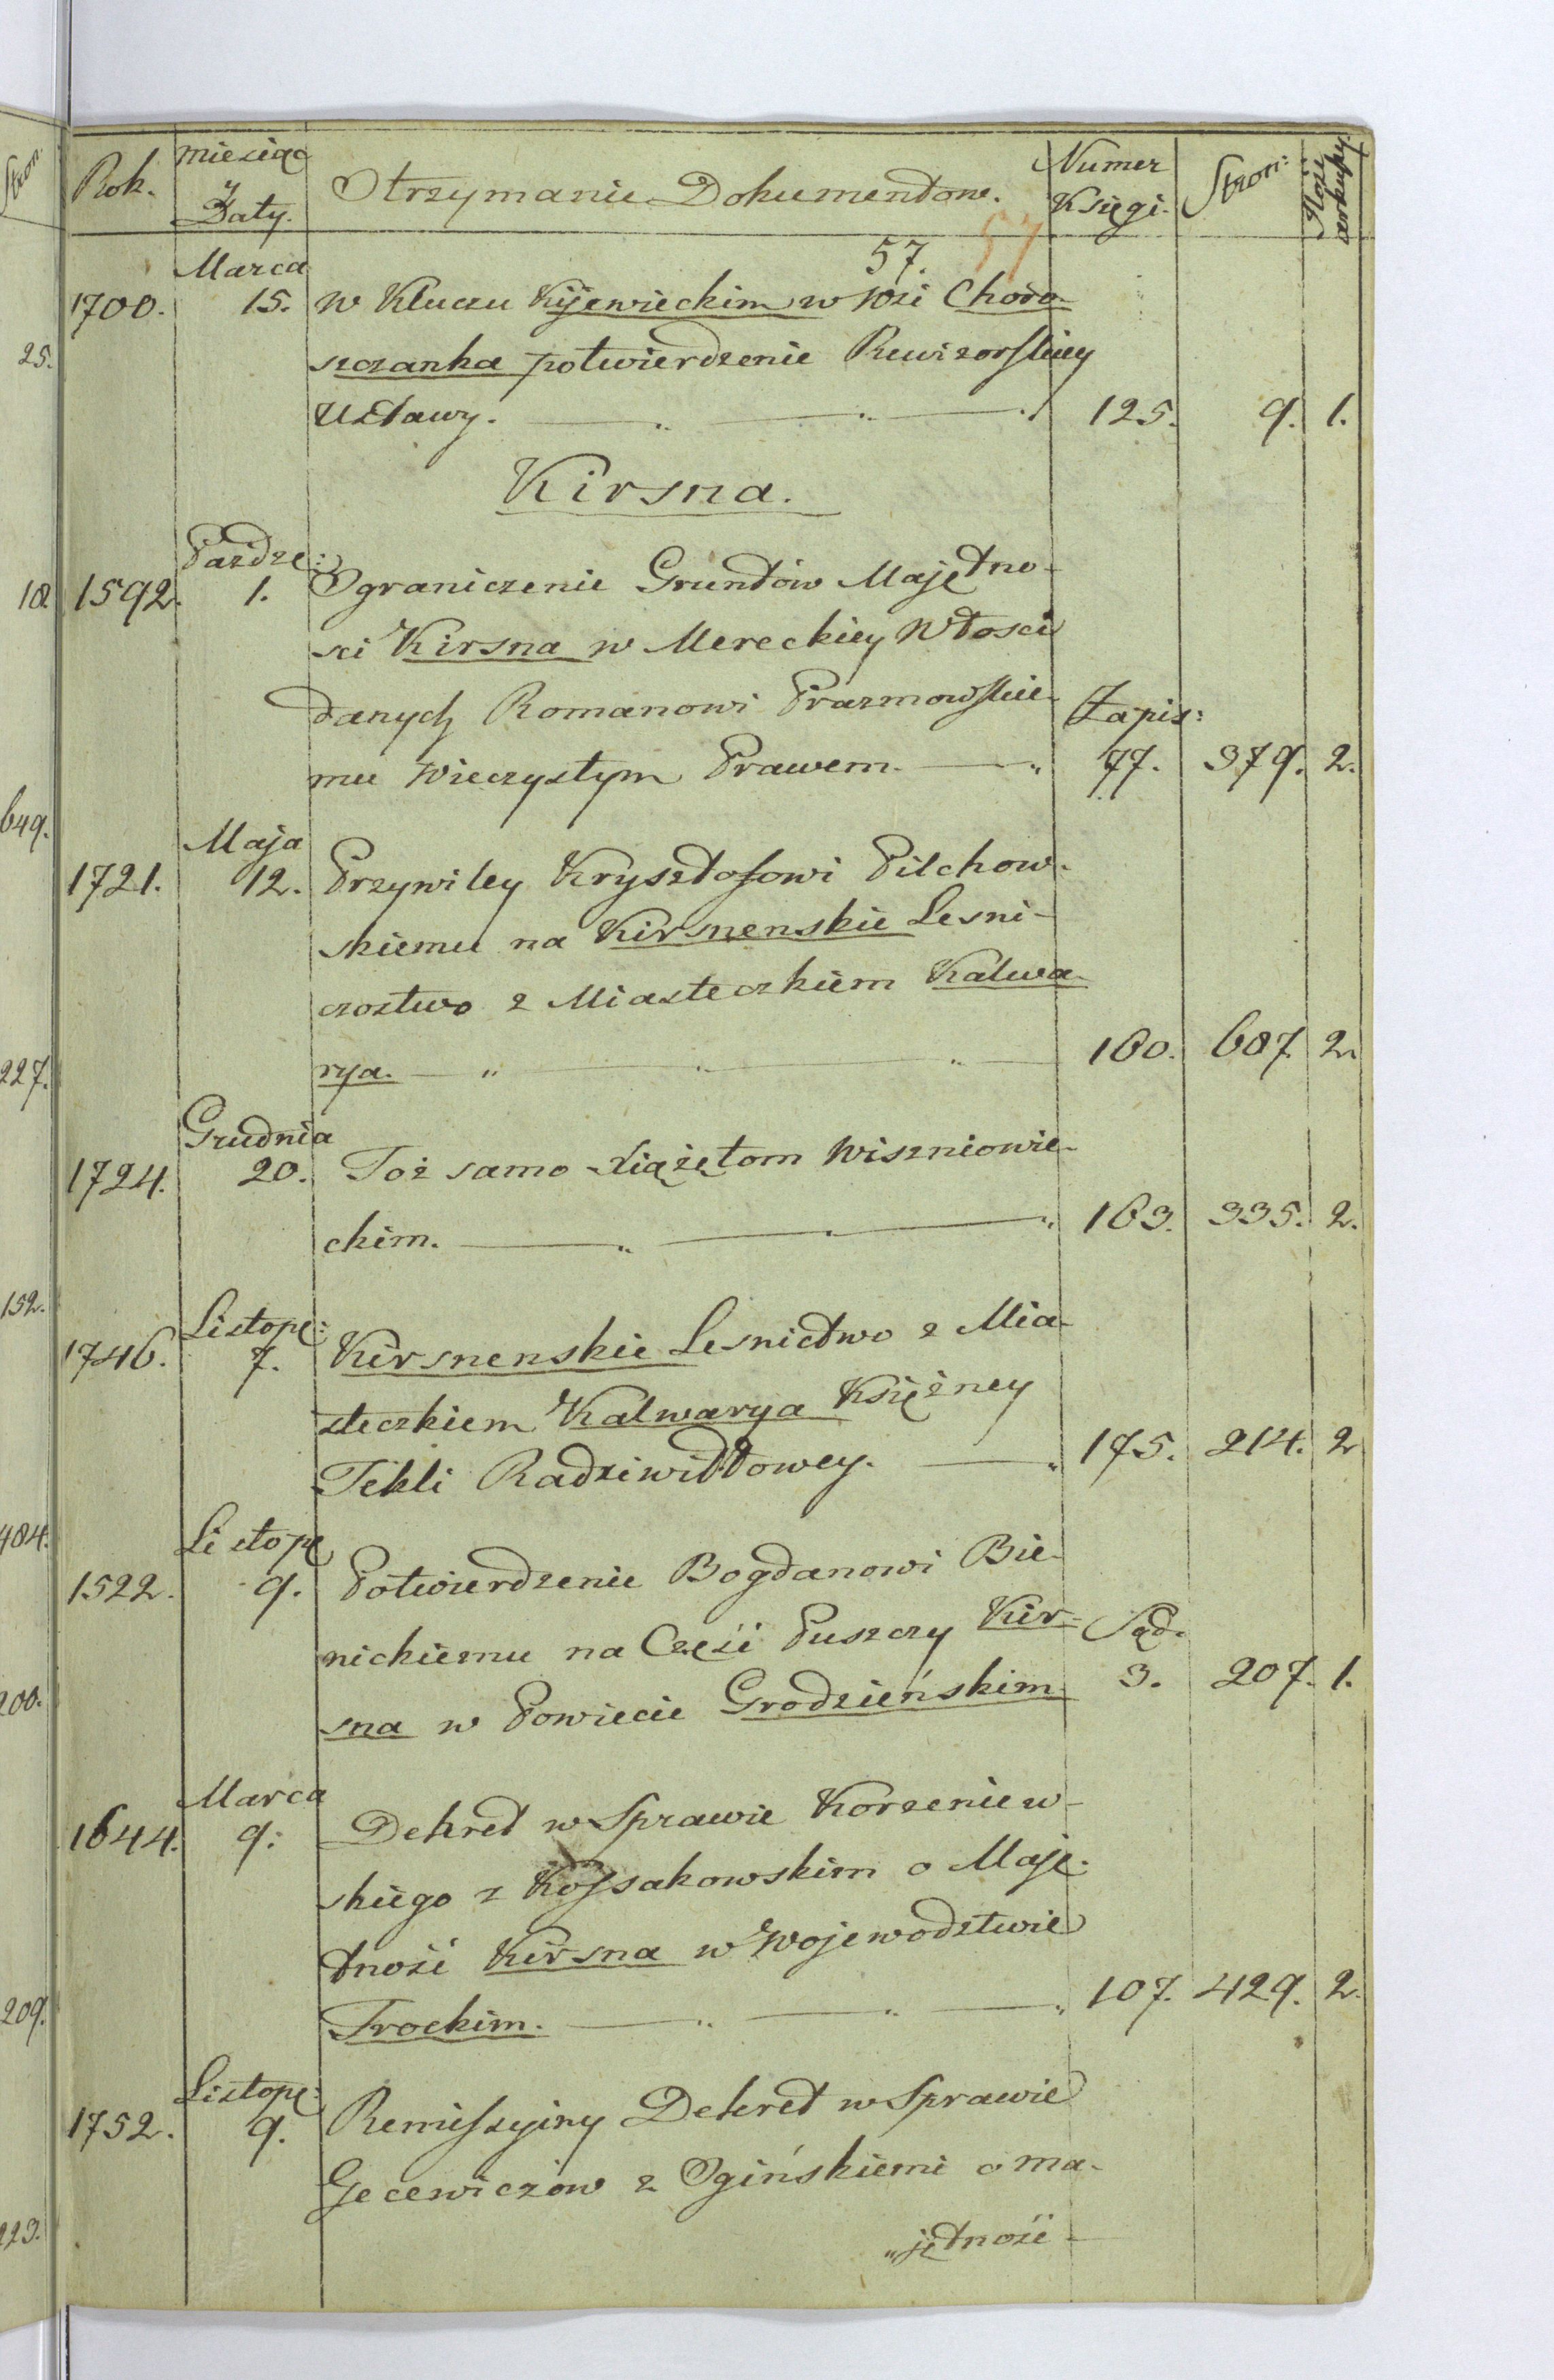 Rok. miesiąc y Daty. Otrzymanie Dokumentow. Numer Księgi. Stron:
57. 57
Marca
1700. 15. w Kluczu Kijewieckim w Wsi Choro-
szczanka potwierdzenie Rewizorskiey
Ustawy. 125. 9. 1.
Kirsna.
Pazdze:
1592. 1. Ograniczenie Gruntów Majętno-
sci Kirsna w Mereckiey Włosci
danych Romanowi Prazmowskie- Zapis:
mu Wieczystym Prawem. 77. 379. 2.
Maja
1721. 12. Przywiley Krysztofowi Pilchow-
skiemu na Kirsnenskie Lesni-
czostwo z Miasteczkiem Kalwa-
rya. 160. 687. 2.
Grudnia
1724. 20. Toż samo Xiążętom Wiszniowie-
ckim. 163. 335. 2.
Listop:
1746. 7. Kirsnenskie Lesnictwo z Mia-
steczkiem Kalwarya Księżney
Tekli Radziwiłłowey. 175. 214. 2
Listop
1522. 9. Potwierdzenie Bogdanowi Bie-
nickiemu na Częśi Puszczy Kir- Sąd.
sna w Powiecie Grodzieńskim 3. 207. 1.
Marca
1644. 9. Dekret w Sprawie Korzeniew-
skiego z Kossakowskim o Maję-
tnośi Kirsna w Wojewodztwie
Trockim. 107. 429. 2.
Listop:
1752. 9. Remissyiny Dekret w Sprawie
Gecewiczow z Ogińskiemi o ma-
jętnośi
25.
18
649.
227.
152.
484.
200.
209.
223.